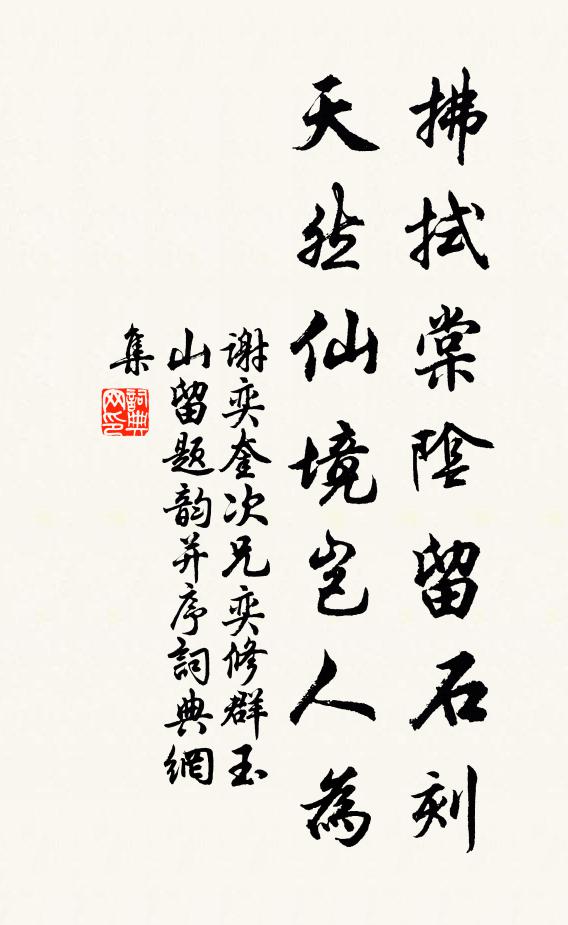 拂拭棠陰留石刻
天然仙境豈人為
謝奕奎次兄奕修群玉
山留題韵并序詞典網
集
詞典网印